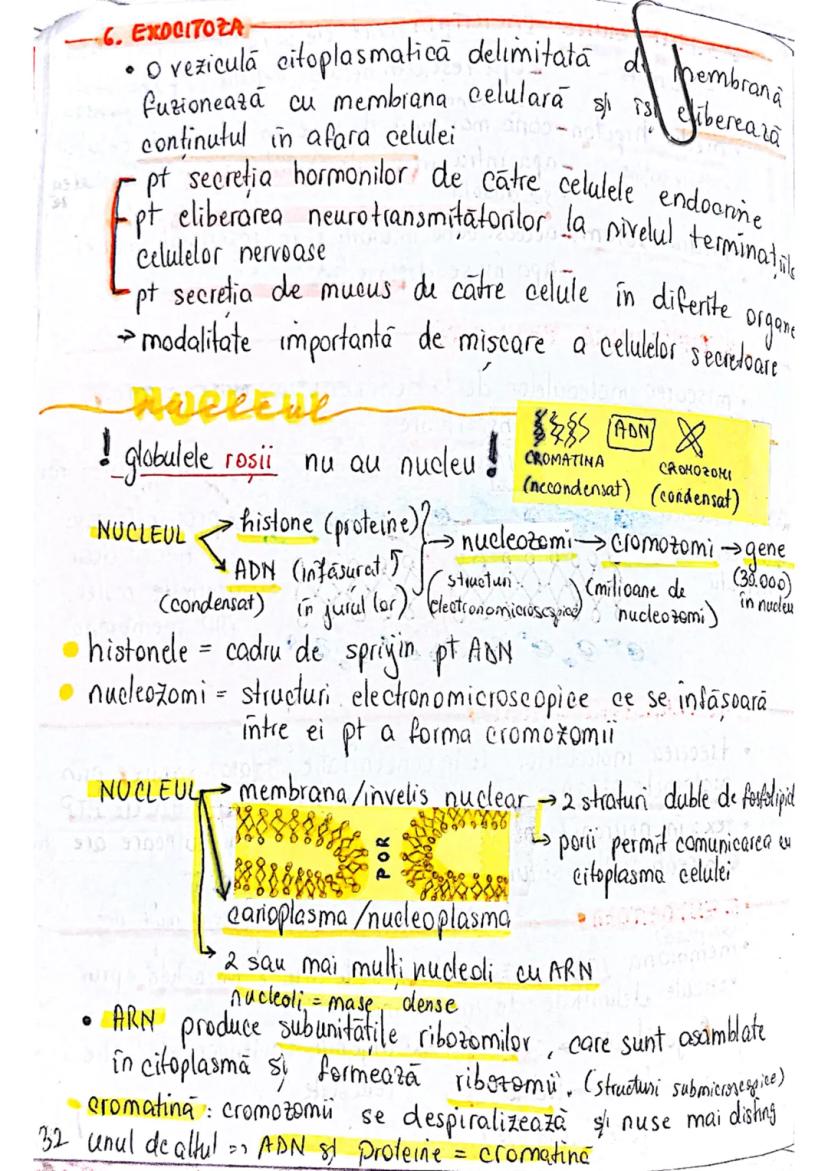 6. EXOCITOZA
• o veziculă citoplasmatică delimitată de membrană
fuzionează cu membrana celulară și își eliberează
conținutul în afara celulei
- pt secreția hormonilor de către celulele endocrine
- pt eliberarea neurotransmițătorilor la nivelul terminațiile
celulelor nervoase
- pt secreția de mucus de către celule în diferite organe
→ modalitate importantă de mișcare a celulelor secretoare
Nucleul
! globulele roșii nu au nucleu !
ADN
CROMATINA
(necondensat)
CROMOZOMI
(condensat)
NUCLEUL → histone (proteine)
→ ADN (înfășurat
(condensat) în jurul lor)
→ nucleozomi → cromozomi → gene
(structuri electronomicroscopice)
(milioane de nucleozomi)
(30.000) în nucleu
• histonele = cadru de sprijin pt ADN
• nucleozomi = structuri electronomicroscopice ce se înfășoară
între ei pt a forma cromozomii
NUCLEUL → membrana/invelis nuclear → 2 straturi duble de fosfolipid
↳ porii permit comunicarea cu
citoplasma celulei
POR
carioplasma/nucleoplasma
2 sau mai mulți nucleoli cu ARN
nucleoli = mase dense
• ARN produce subunitățile ribozomilor, care sunt asamblate
în citoplasmă și formează ribozomii. (structuri submicroscopice)
- cromatină: cromozomii se despiralizează și nu se mai disting
unul de altul => ADN și Proteine = cromatină
32